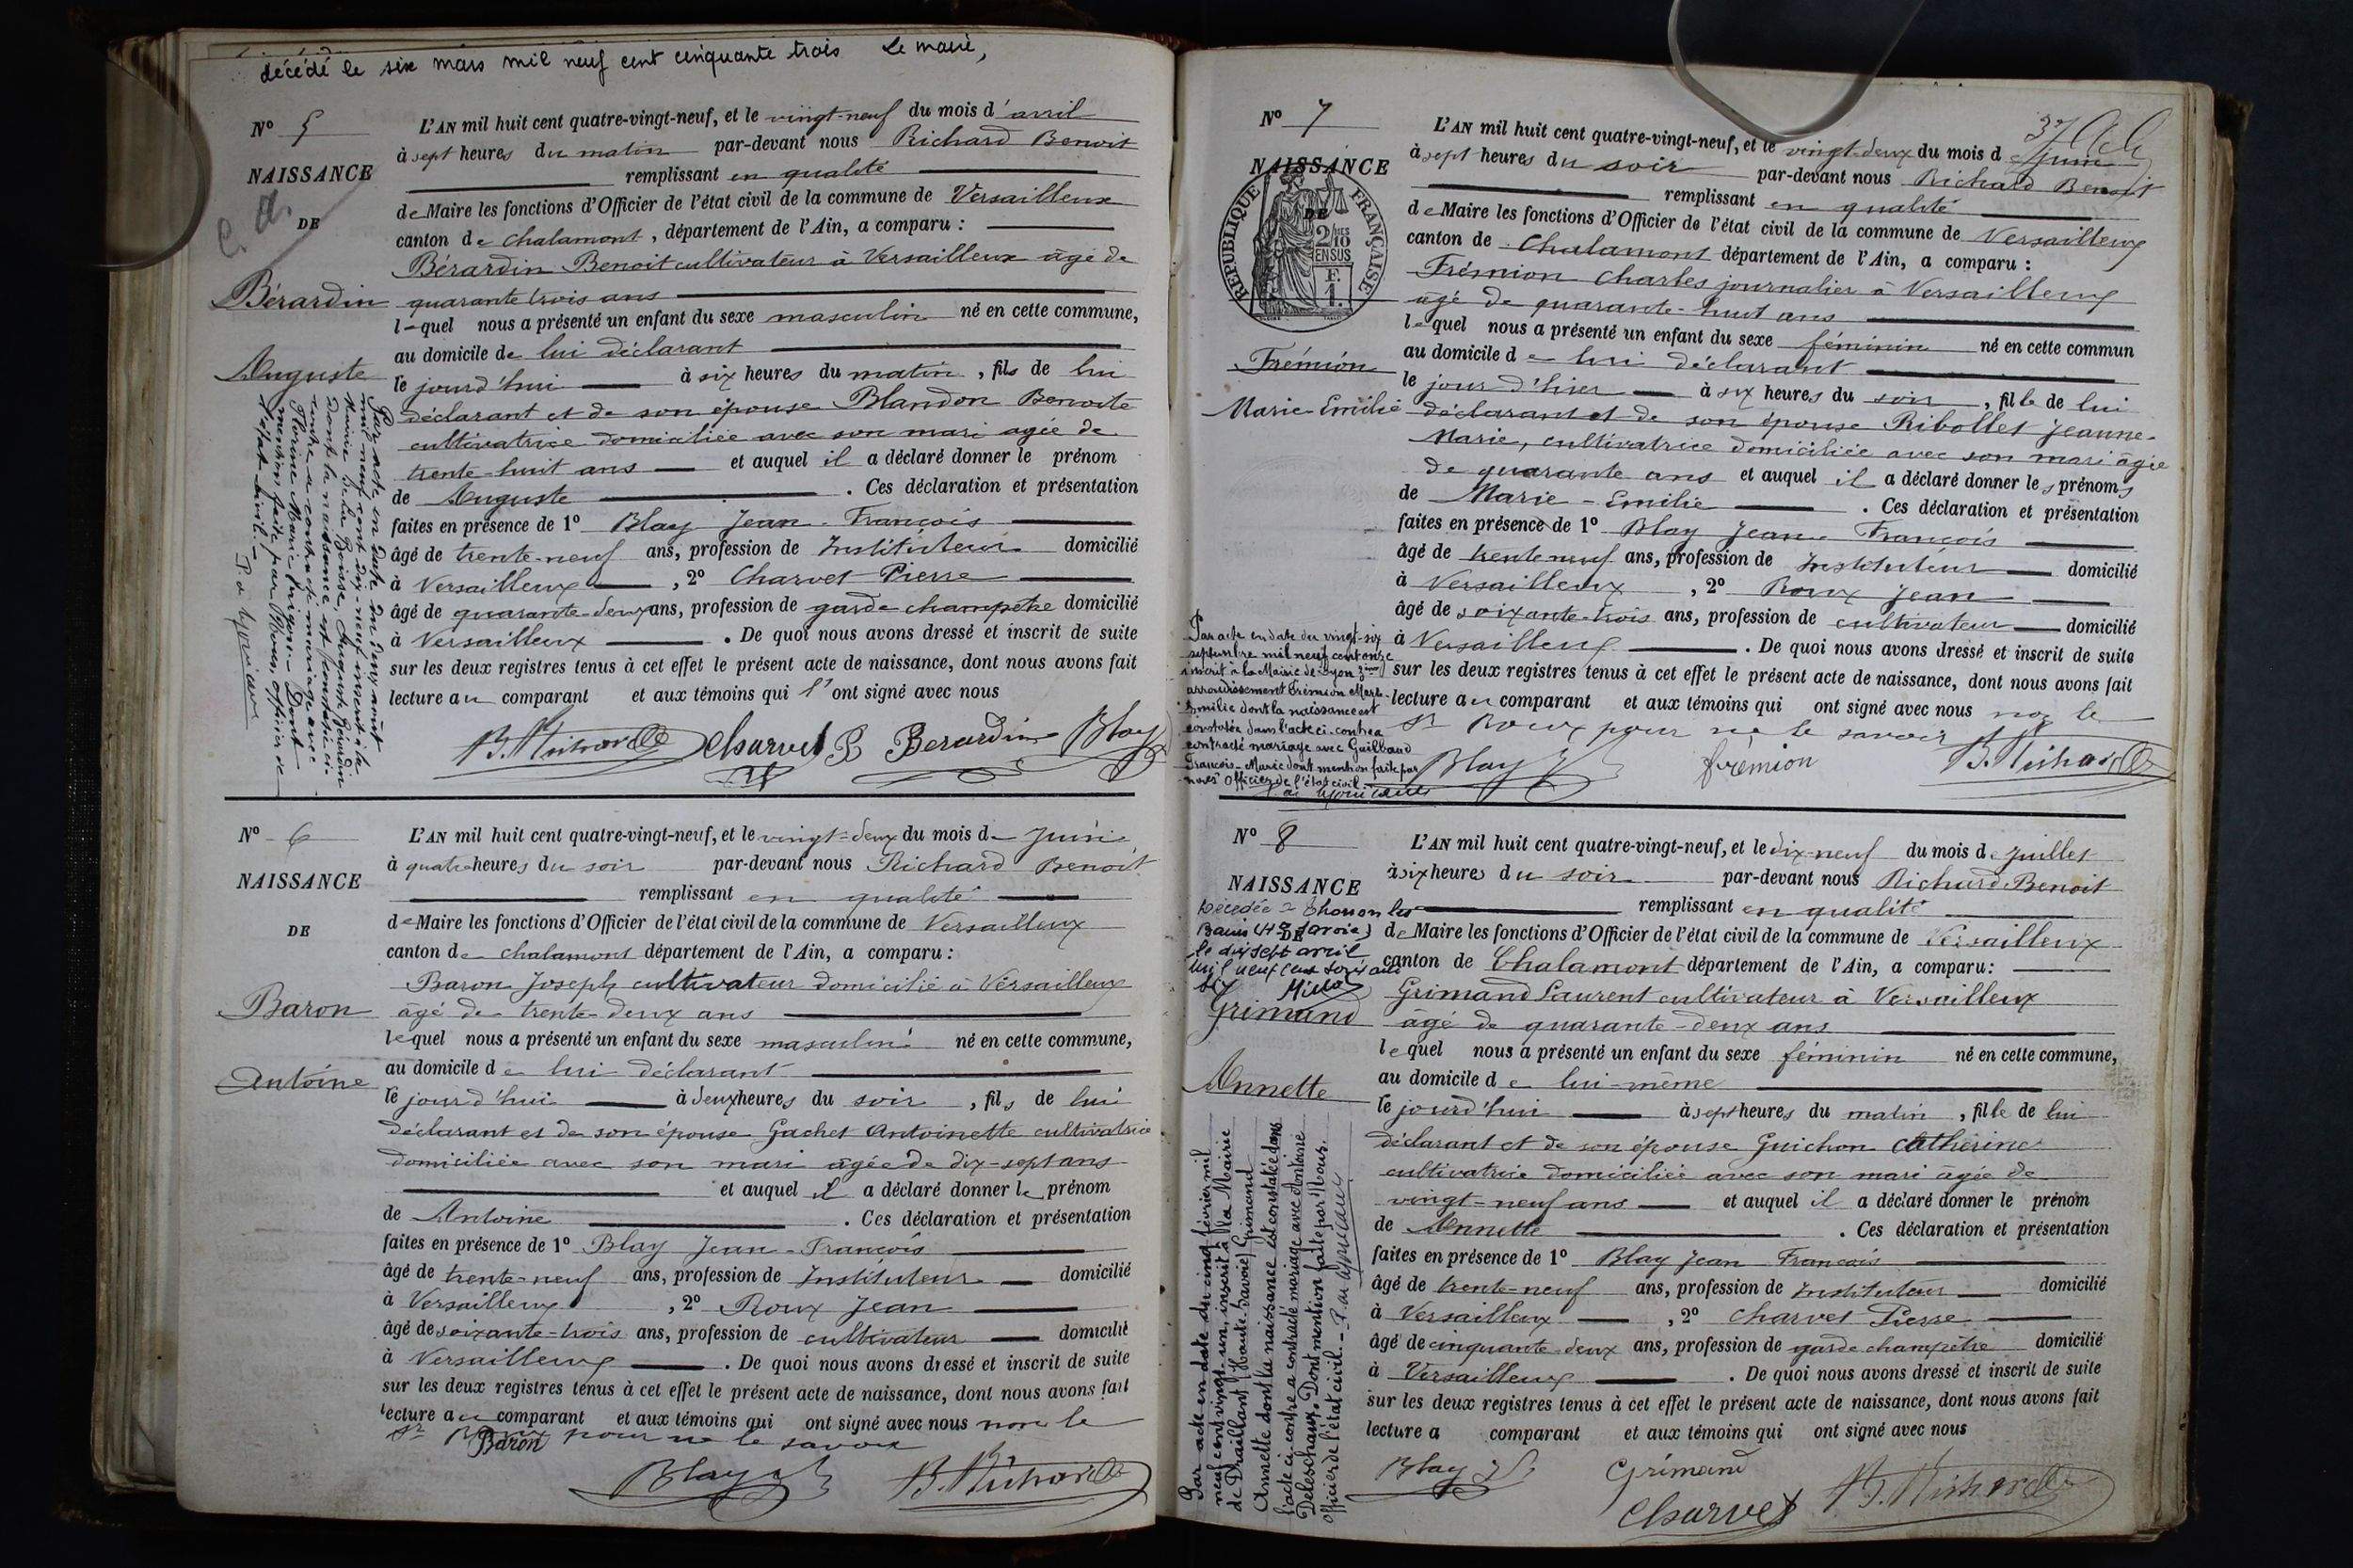 décédé le six mars mil neuf cent cinquante trois Le maire,
N° 5
NAISSANCE
DE
Bérardin
Auguste
L'AN mil huit cent quatre-vingt-neuf, et le vingt-neuf du mois d'avril
à sept heures du matin par-devant nous Richard Benoit
remplissant en qualité
de Maire les fonctions d'Officier de l'état civil de la commune de Versailleux
canton de Chalamont, département de l'Ain, a comparu :
Bérardin Benoit cultivateur à Versailleux âgé de
quarante trois ans
lequel nous a présenté un enfant du sexe masculin né en cette commune,
au domicile de lui déclarant
le jourd'hui à six heures du matin, fils de lui
déclarant et de son épouse Blandon Benoite
cultivatrice domiciliée avec son mari agée de
trente-huit ans et auquel il a déclaré donner le prénom
de Auguste . Ces déclaration et présentation
faites en présence de 1° Blay Jean-François
âgé de trente-neuf ans, profession de Instituteur domicilié
à Versailleux , 2° Charvet Pierre
âgé de quarante-deux ans, profession de garde champêtre domicilié
à Versailleux . De quoi nous avons dressé et inscrit de suite
sur les deux registres tenus à cet effet le présent acte de naissance, dont nous avons fait
lecture au comparant et aux témoins qui l'ont signé avec nous
B. Richard Charvet P Berardin Blay
Par acte en date du deux août
mil neuf cent dix-neuf inscrit à la
Mairie de La Boisse, Auguste Bérardin
dont la naissance est constatée ci-
contre a contracté mariage avec
mention faite par Nous, officier de
l'état civil.-
N° 6
NAISSANCE
DE
Baron
Antoine
L'AN mil huit cent quatre-vingt-neuf, et le vingt-deux du mois de Juin
à quatre heures du soir par-devant nous Richard Benoit
remplissant en qualité
de Maire les fonctions d'Officier de l'état civil de la commune de Versailleux
canton de chalamont département de l'Ain, a comparu :
Baron Joseph cultivateur domicilié à Versailleux
âgé de trente-deux ans
lequel nous a présenté un enfant du sexe masculin né en cette commune,
au domicile de lui déclarant
le jourd'hui à deux heures du soir , fils de lui
déclarant et de son épouse Gachet Antoinette cultivatrice
domiciliée avec son mari âgée de dix-sept ans
et auquel il a déclaré donner le prénom
de Antoine . Ces déclaration et présentation
faites en présence de 1° Blay Jean-François
âgé de trente-neuf ans, profession de Instituteur domicilié
à Versailleux , 2° Roux Jean
âgé de soixante-trois ans, profession de cultivateur domicilié
à Versailleux . De quoi nous avons dressé et inscrit de suite
sur les deux registres tenus à cet effet le présent acte de naissance, dont nous avons fait
lecture au comparant et aux témoins qui ont signé avec nous non le
sr Roux pour ne le savoir
Baron
Blay B. Richard
N° 7
NAISSANCE
DE
RÉPUBLIQUE FRANÇAISE
Frémion
Marie-Emilie
L'AN mil huit cent quatre-vingt-neuf, et le vingt-deux du mois de juin
à sept heures du soir par-devant nous Richard Benoit
remplissant en qualité
de Maire les fonctions d'Officier de l'état civil de la commune de Versailleux
canton de Chalamont département de l'Ain, a comparu :
Frémion Charles journalier à Versailleux
âgé de quarante-huit ans
lequel nous a présenté un enfant du sexe féminin né en cette commun
au domicile de lui déclarant
le jour d'hier à six heures du soir , fille de lui
déclarant et de son épouse Ribollet Jeanne-
Marie, cultivatrice domiciliée avec son mari âgée
de quarante ans et auquel il a déclaré donner les prénoms
de Marie-Emilie . Ces déclaration et présentation
faites en présence de 1° Blay Jean-François
âgé de trente neuf ans, profession de Instituteur domicilié
à Versailleux , 2° Roux Jean
âgé de soixante-trois ans, profession de cultivateur domicilié
à Versailleux . De quoi nous avons dressé et inscrit de suite
sur les deux registres tenus à cet effet le présent acte de naissance, dont nous avons fait
lecture au comparant et aux témoins qui ont signé avec nous non le
sr Roux pour ne le savoir
Blay frémion B. Richard
Par acte en date du vingt-six
septembre mil neuf cent onze
inscrit à la Mairie de Lyon 3ème
arrondissement Frémion Marie-
Emilie dont la naissance est
constatée dans l'acte ci-contre a
contracté mariage avec Guilbaud
François-Marie dont mention faite par
nous Officier de l'état civil
N° 8
NAISSANCE
DE
Décédée à Thonon les
Bains (Hte Savoie)
le dix sept avril
mil neuf cent soixante
six
Grimand
Annette
L'AN mil huit cent quatre-vingt-neuf, et le dix-neuf du mois de juillet
à six heures du soir par-devant nous Richard Benoit
remplissant en qualité
de Maire les fonctions d'Officier de l'état civil de la commune de Versailleux
canton de Chalamont département de l'Ain, a comparu :
Grimand Laurent cultivateur à Versailleux
âgé de quarante-deux ans
lequel nous a présenté un enfant du sexe féminin né en cette commune,
au domicile de lui-même
le jourd'hui à sept heures du matin , fille de lui
déclarant et de son épouse Guichon Catherine
cultivatrice domiciliée avec son mari âgée de
vingt-neuf ans et auquel il a déclaré donner le prénom
de Annette . Ces déclaration et présentation
faites en présence de 1° Blay Jean François
âgé de trente-neuf ans, profession de Instituteur domicilié
à Versailleux , 2° Charvet Pierre
âgé de cinquante-deux ans, profession de garde champêtre domicilié
à Versailleux . De quoi nous avons dressé et inscrit de suite
sur les deux registres tenus à cet effet le présent acte de naissance, dont nous avons fait
lecture a comparant et aux témoins qui ont signé avec nous
Blay Grimand
Charvet B. Richard
Par acte en date du cinq février mil
neuf cent vingt-un, inscrit à la Mairie
de Draillant (Haute Savoie) Grimand
Annette dont la naissance est constatée dans
l'acte ci-contre a contracté mariage avec Antoine
Deleschaux. Dont mention faite par Nous.
officier de l'état civil.-